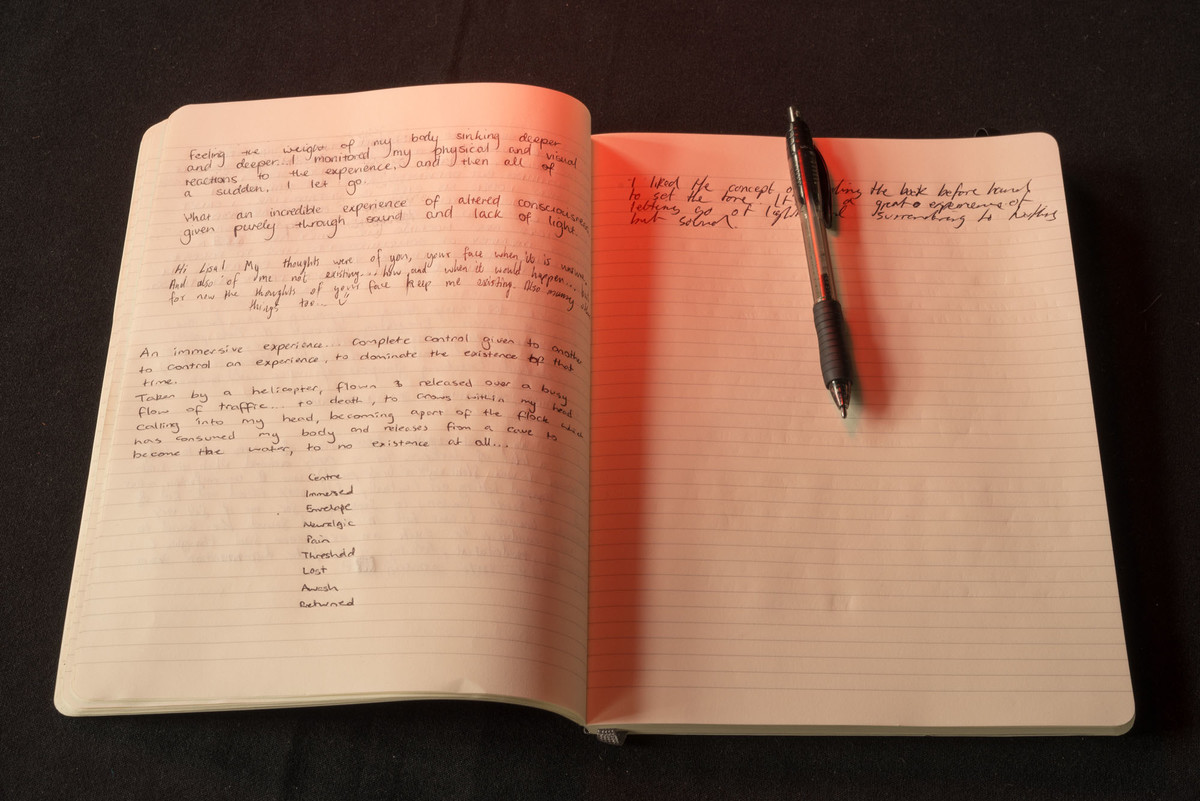 Feeling the weight of my body sinking deeper
and deeper.. I monitored my physical and visual
reactions to the experience. and then all of
a sudden. I let go.
What an incredible experience of altered consciousness
given purely through sound and lack of light.
Hi Lisa! My thoughts were of you, your face when
And also of me not existing... how and when it would happen...
for now the thoughts of your face keep me existing. Also
things too...
An immersive experience... Complete control given to another
to control an experience, to dominate the existence of that
time.
Taken by a helicopter, flown & released over a busy
flow of traffic... to death, to crows within my head
calling into my head, becoming apart of the flock which
has consumed my body and releases from a cave to
become the water, to no existence at all...
Centre
Immersed
Envelope
Neuralgic
Pain
Threshold
Lost
Awash
Returned
I liked the concept the book before hand
to set the tone. It great experience of
letting go of light surrendering to nothing
but sound.